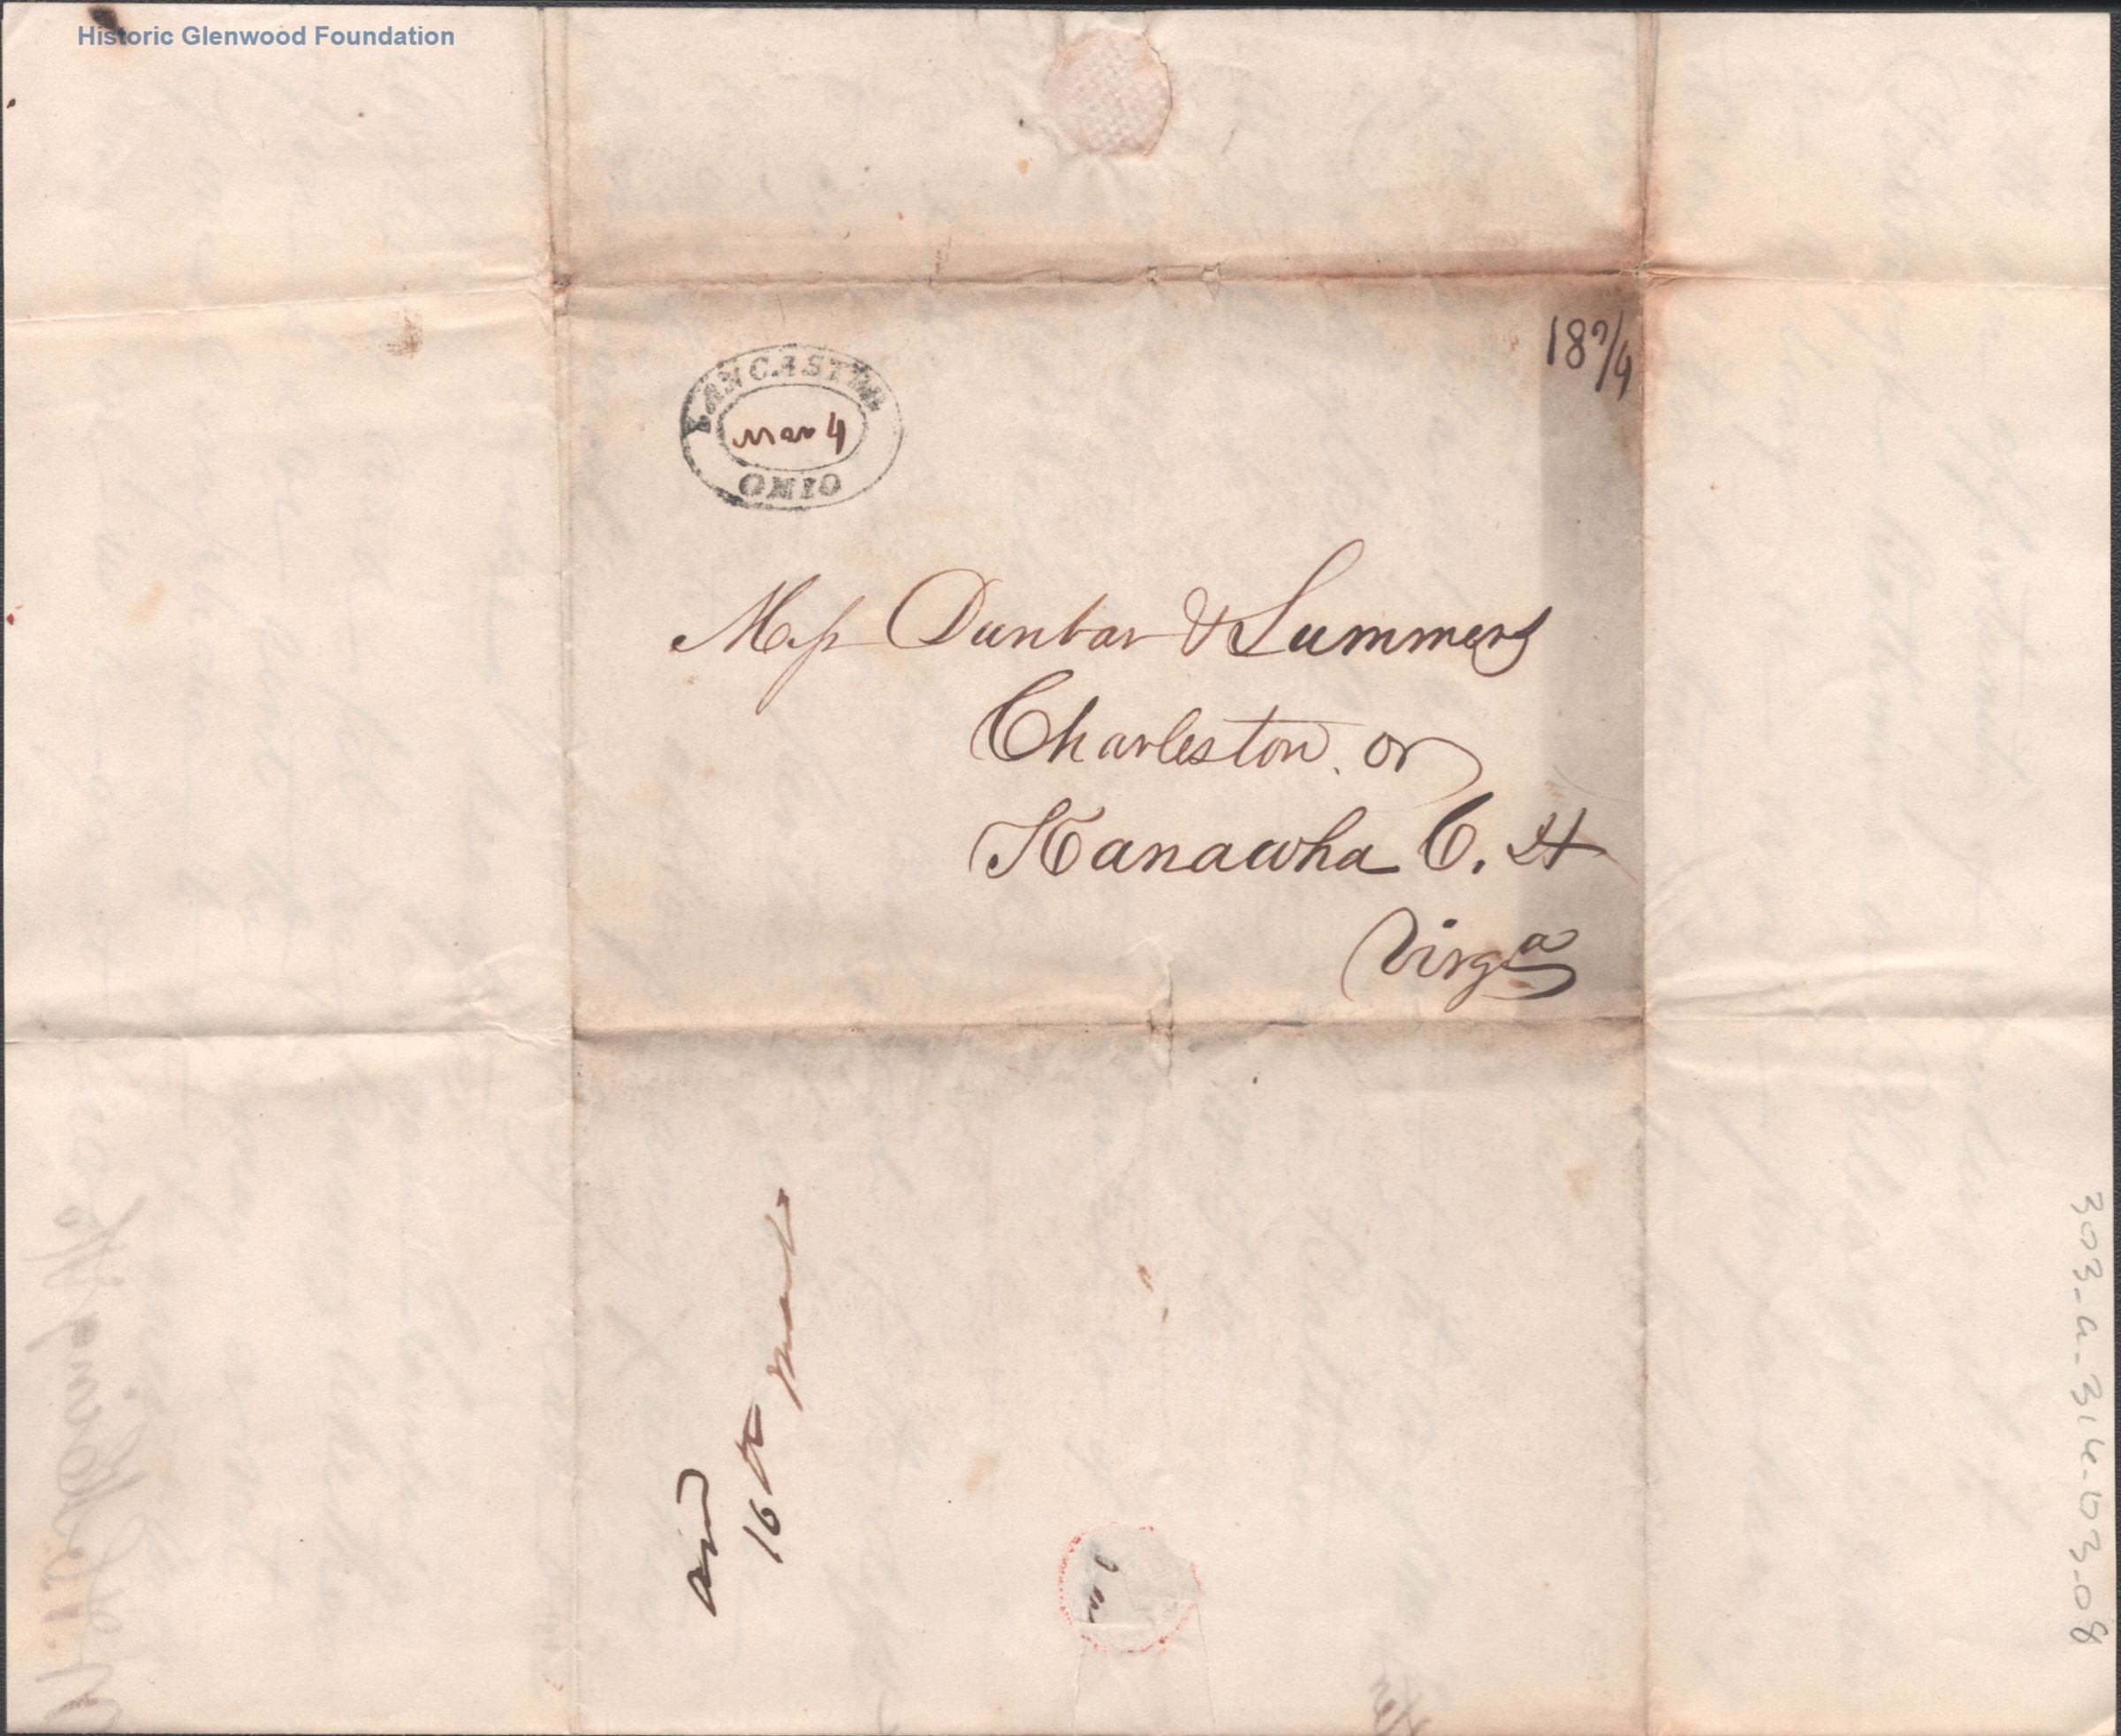 Historic Glenwood Foundation
18 3/4
LANCASTER
Mar 4
OHIO
Mess Dunbar & Summers
Charleston or
Kanawha C. H
Virga
and
16th March
303-a-314-b03-08